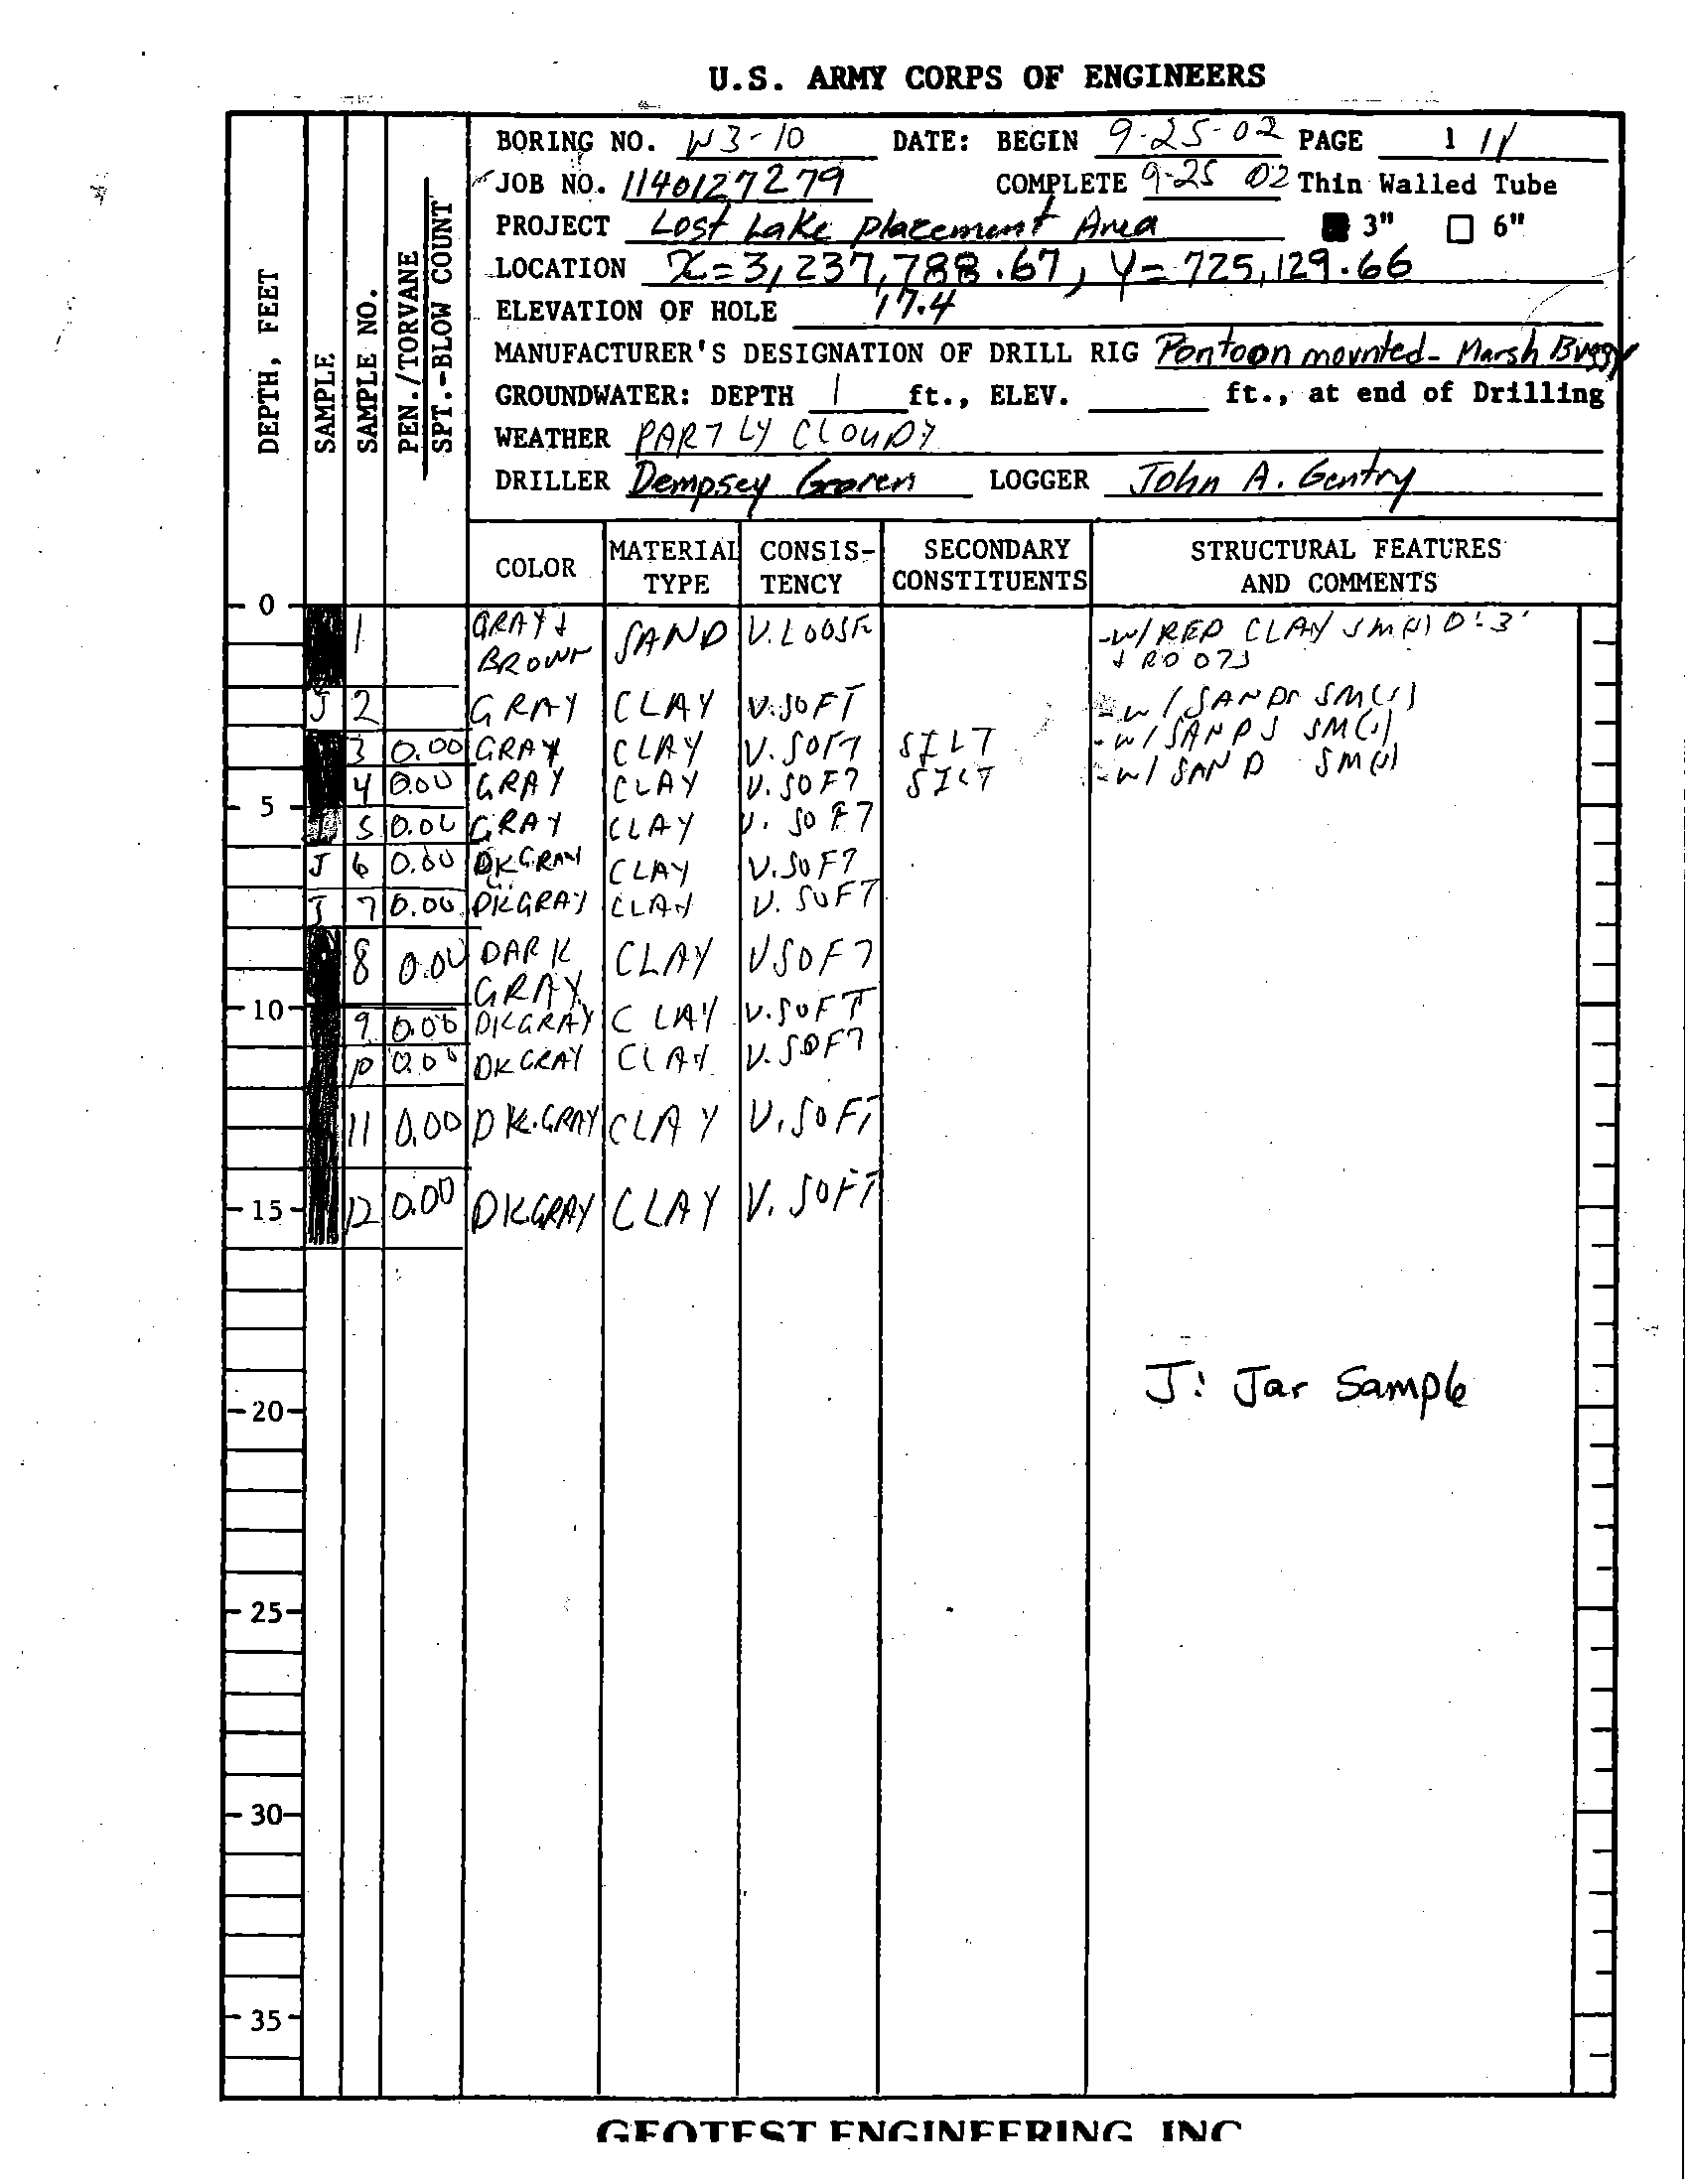 U.S. ARMY CORPS OF ENGINEERS
BORING NO. W3-10 DATE: BEGIN 9-25-02 PAGE 1 / 1
JOB NO. 1140127279 COMPLETE 9-25 02 Thin Walled Tube
PROJECT Lost Lake Placement Area ■ 3" □ 6"
LOCATION X=3,237,788.67, Y=725,129.66
ELEVATION OF HOLE 17.4
MANUFACTURER'S DESIGNATION OF DRILL RIG Pontoon mounted- Marsh Buggy
GROUNDWATER: DEPTH 1 ft., ELEV. ft., at end of Drilling
WEATHER PARTLY CLOUDY
DRILLER Dempsey LOGGER John A. Gentry
DEPTH, FEET
SAMPLE
SAMPLE NO.
PEN./TORVANE
SPT.-BLOW COUNT
COLOR MATERIAL TYPE CONSIS-TENCY SECONDARY CONSTITUENTS STRUCTURAL FEATURES AND COMMENTS
0
1 GRAY & BROWN SAND V. LOOSE -W/ RED CLAY SM(s) 0'-3' & ROOTS
J 2 GRAY CLAY V. SOFT -W/ SANDS SM(s)
3 0.00 GRAY CLAY V. SOFT SILT -W/ SANDS SM(s)
4 0.00 GRAY CLAY V. SOFT SILT -W/ SAND SM(s)
5
5 0.00 GRAY CLAY V. SOFT
J 6 0.00 DK GRAY CLAY V. SOFT
J 7 0.00 DK GRAY CLAY V. SOFT
8 0.00 DARK GRAY CLAY V SOFT
10
9 0.00 DK GRAY CLAY V. SOFT
10 0.00 DK GRAY CLAY V. SOFT
11 0.00 DK. GRAY CLAY V. SOFT
15
12 0.00 DK GRAY CLAY V. SOFT
J: Jar Sample
20
25
30
35
GEOTEST ENGINEERING INC